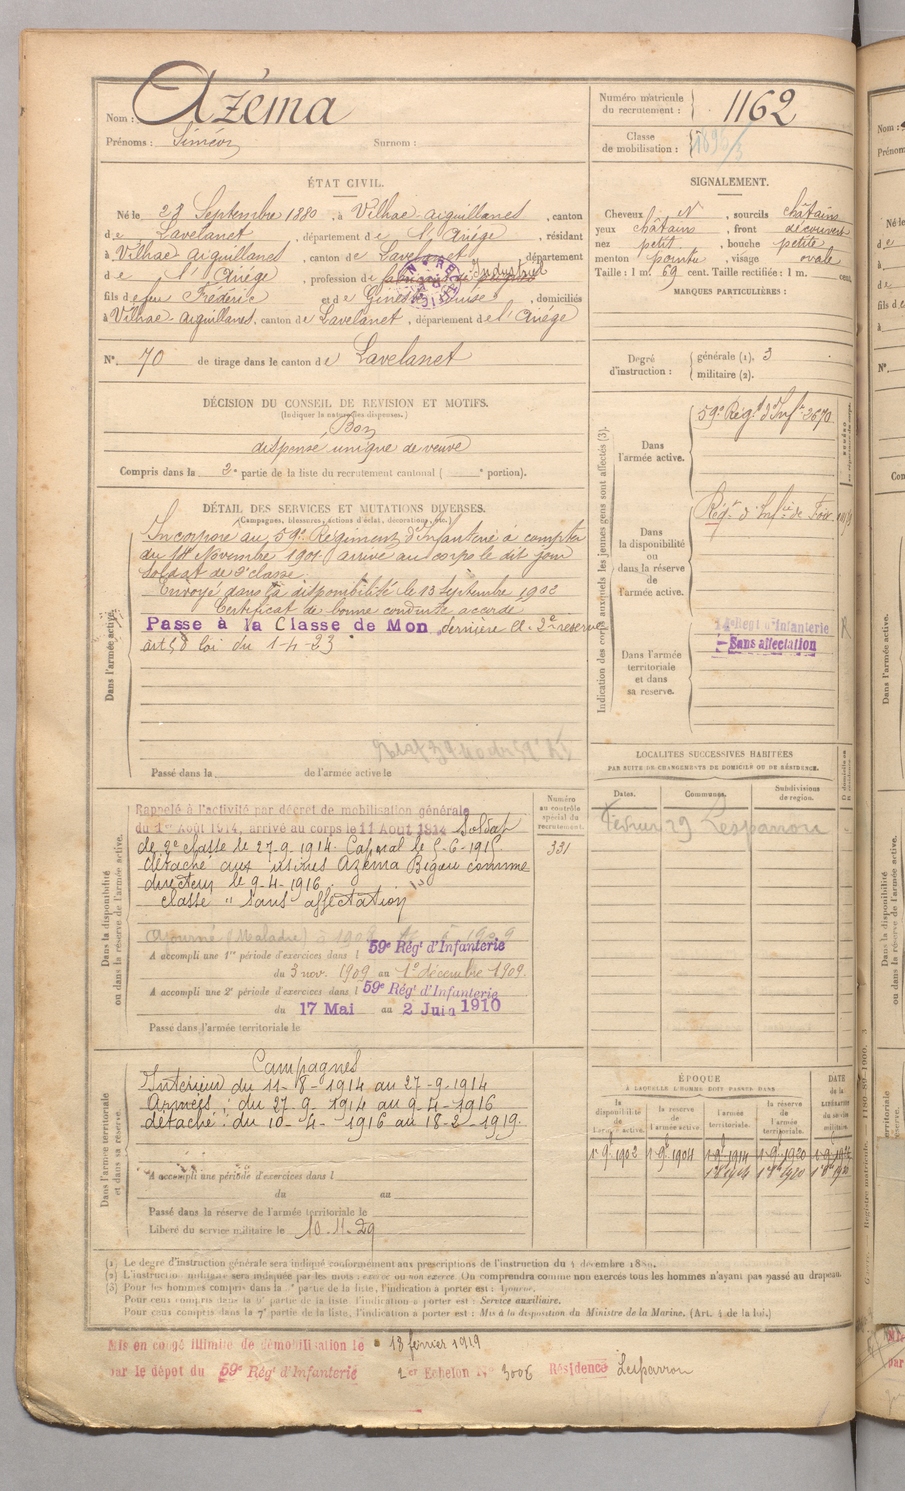 Nom : Azéma
Prénoms : Siméon Surnom :
Numéro matricule du recrutement : 1162
Classe de mobilisation :
ÉTAT CIVIL.
Né le 28 Septembre 1880, à Vilhac-aiguillanes, canton
de Lavelanet, département de l'Ariége, résidant
à Vilhac aiguillanes, canton de Lavelanet, département
de l'Ariége, profession de Industriel
fils de feu Frédéric et de Ginesse, domiciliés
à Vilhac-aiguillanes, canton de Lavelanet, département de l'Ariége
N° 70 de tirage dans le canton de Lavelanet
SIGNALEMENT.
Cheveux et sourcils châtains
yeux châtains, front découvert
nez petit, bouche petite
menton pointu, visage ovale
Taille : 1 m. 69 cent. Taille rectifiée : 1 m. cent.
MARQUES PARTICULIÈRES :
Degré d'instruction : générale (1). 3
militaire (2).
DÉCISION DU CONSEIL DE REVISION ET MOTIFS.
(Indiquer la nature des dispenses.)
Bon
dispensé unique de veuve
Compris dans la 2e partie de la liste du recrutement cantonal ( e portion).
DÉTAIL DES SERVICES ET MUTATIONS DIVERSES.
(Campagnes, blessures, actions d'éclat, décorations, etc.)
Dans l'armée active.
Incorporé au 59e Régiment d'Infanterie à compter
du 14 Novembre 1901 arrivé au corps le dit jour
soldat de 2e classe.
Envoyé dans la disponibilité le 13 Septembre 1902
Certificat de bonne conduite accordé
Passé à la Classe de Mon dernière Cl. 2e réserve
art 58 loi du 1-4-23
Passé dans la de l'armée active le
Indication des corps auxquels les jeunes gens sont affectés (3).
Dans l'armée active.
59e Régt d'Infie 2670
Dans la disponibilité ou dans la réserve de l'armée active.
Régt d'Infie de Foix
Dans l'armée territoriale et dans sa réserve.
Régt d'Infanterie
Sans affectation
LOCALITÉS SUCCESSIVES HABITÉES
PAR SUITE DE CHANGEMENTS DE DOMICILE OU DE RÉSIDENCE.
Dates. Communes. Subdivisions de region.
Février 29 Lesparrou
Dans la disponibilité ou dans la réserve de l'armée active.
Numéro au contrôle spécial du recrutement.
331
Rappelé à l'activité par décret de mobilisation générale
du 1er Août 1914, arrivé au corps le 11 Août 1914 Soldat
de 2e classe le 27-9-1914. Caporal le 5-6-1915
détaché aux usines Azéma Bigou comme
directeur le 9-4-1916
classé "sans affectation"
Ajourné (Maladie) à 1909
A accompli une 1re période d'exercices dans l 59e Régt d'Infanterie
du 3 nov. 1909 au 1er décembre 1909.
A accompli une 2e période d'exercices dans l 59e Régt d'Infanterie
du 17 Mai au 2 Juin 1910
Passé dans l'armée territoriale le
Dans l'armée territoriale et dans sa réserve.
Campagnes
Intérieur du 11-8-1914 au 27-9-1914
Armées : du 27-9-1914 au 9-4-1916
détaché : du 10-4-1916 au 18-2-1919.
A accompli une période d'exercices dans l
du au
Passé dans la réserve de l'armée territoriale le
Libéré du service militaire le 10.11.29
ÉPOQUE
À LAQUELLE L'HOMME DOIT PASSER DANS
la disponibilité de l'armée active. la réserve de l'armée active l'armée territoriale. la réserve de l'armée territoriale. DATE de la LIBÉRATION du service militaire.
1r 9e 1902 1r 9e 1904 1r 9e 1914 1r 9e 1920
(1) Le degré d'instruction générale sera indiqué conformément aux prescriptions de l'instruction du 4 décembre 1889.
(2) L'instruction militaire sera indiquée par les mots : exercé ou non exercé. On comprendra comme non exercés tous les hommes n'ayant pas passé au drapeau.
(3) Pour les hommes compris dans la partie de la liste, l'indication à porter est : Ajourné.
Pour ceux compris dans la 6e partie de la liste, l'indication à porter est : Service auxiliaire.
Pour ceux compris dans la 7e partie de la liste, l'indication à porter est : Mis à la disposition du Ministre de la Marine. (Art. 4 de la loi.)
Mis en congé illimité de démobilisation le 18 février 1919
par le dépôt du 59e Régt d'Infanterie 2er Echelon N° 3006 Résidence Lesparrou